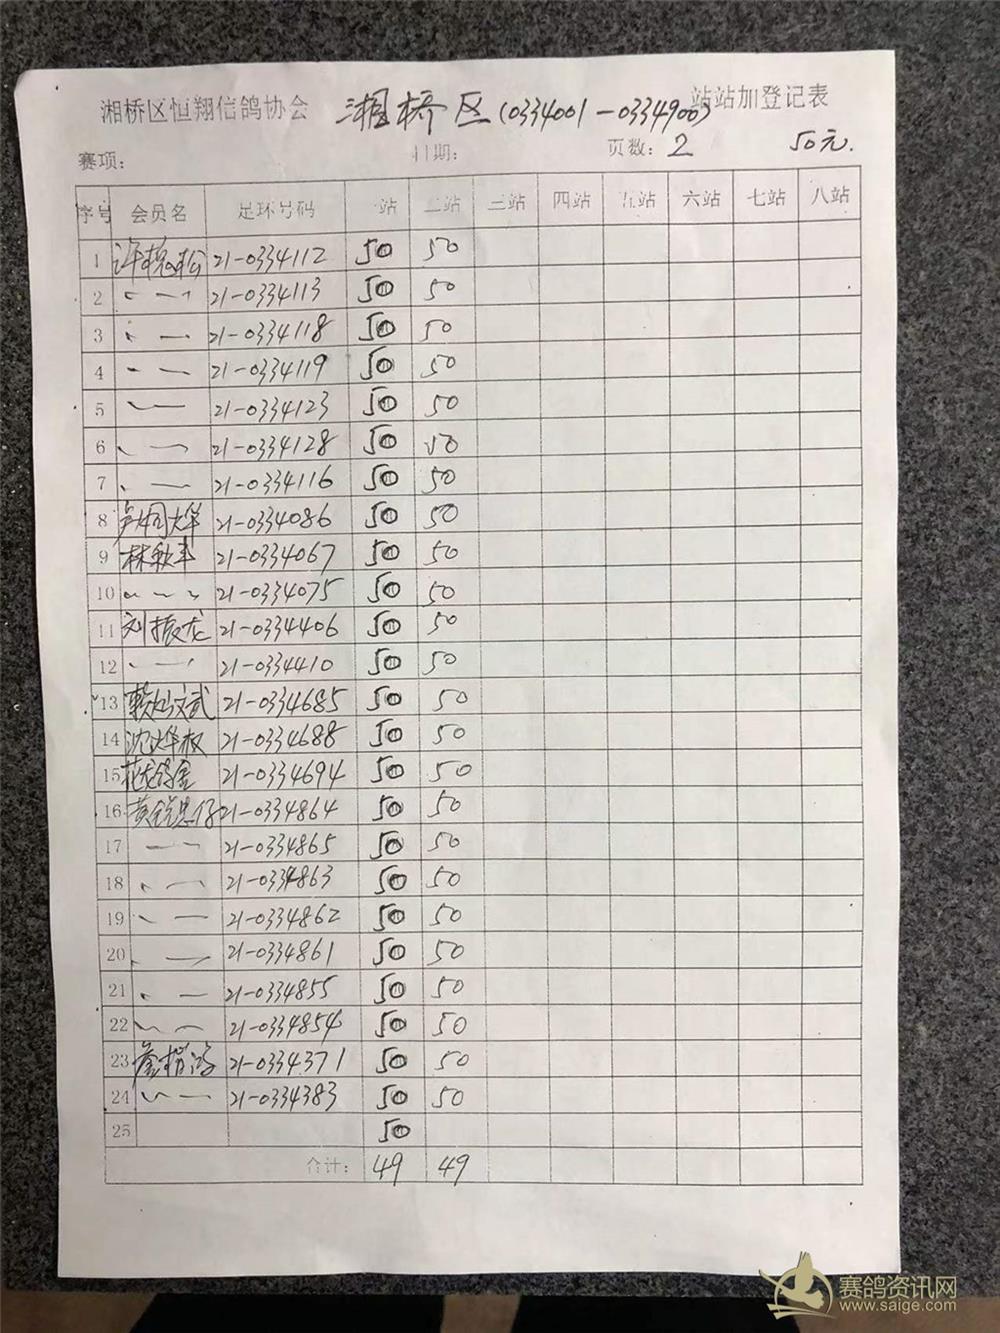 湘桥区恒翔信鸽协会 湘桥区(0334001-0334900) 站站加登记表
赛项: 日期: 页数: 2 50元.
序号 会员名 足环号码 一站 二站 三站 四站 五站 六站 七站 八站
1 21-0334112 50 50
2 〃 21-0334113 50 50
3 〃 21-0334118 50 50
4 〃 21-0334119 50 50
5 〃 21-0334123 50 50
6 〃 21-0334128 50 50
7 〃 21-0334116 50 50
8 21-0334086 50 50
9 林秋丰 21-0334067 50 50
10 〃 21-0334075 50 50
11 刘振龙 21-0334406 50 50
12 〃 21-0334410 50 50
13 21-0334685 50 50
14 沈烨权 21-0334688 50 50
15 21-0334694 50 50
16 21-0334864 50 50
17 〃 21-0334865 50 50
18 〃 21-0334863 50 50
19 〃 21-0334862 50 50
20 〃 21-0334861 50 50
21 〃 21-0334855 50 50
22 〃 21-0334854 50 50
23 21-0334371 50 50
24 〃 21-0334383 50 50
25 50
合计: 49 49
赛鸽资讯网
www.saige.com